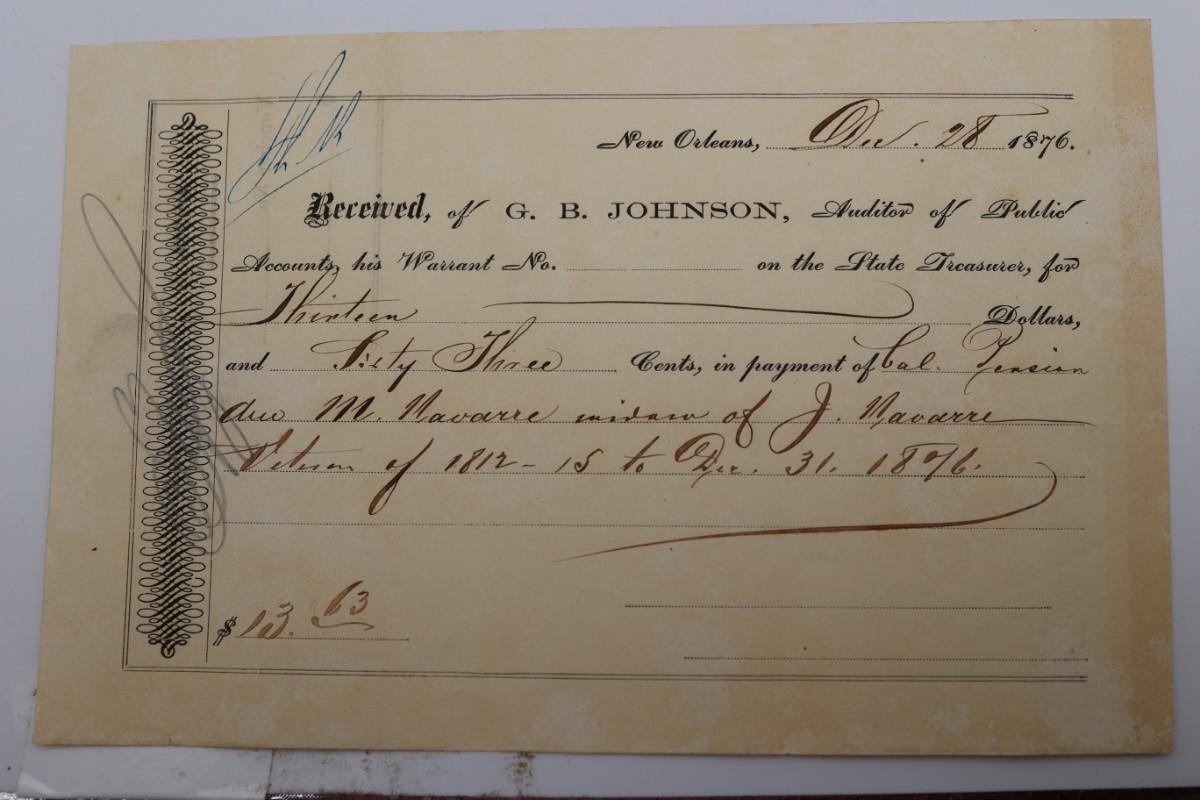 New Orleans, Dec. 28 1876.
Received, of G. B. JOHNSON, Auditor of Public
Accounts, his Warrant No. on the State Treasurer, for
Thirteen Dollars,
and Sixty Three Cents, in payment of bal. Pension
due M. Navarre widow of J. Navarre
Veteran of 1812-15 to Dec. 31. 1876.
$ 13.63